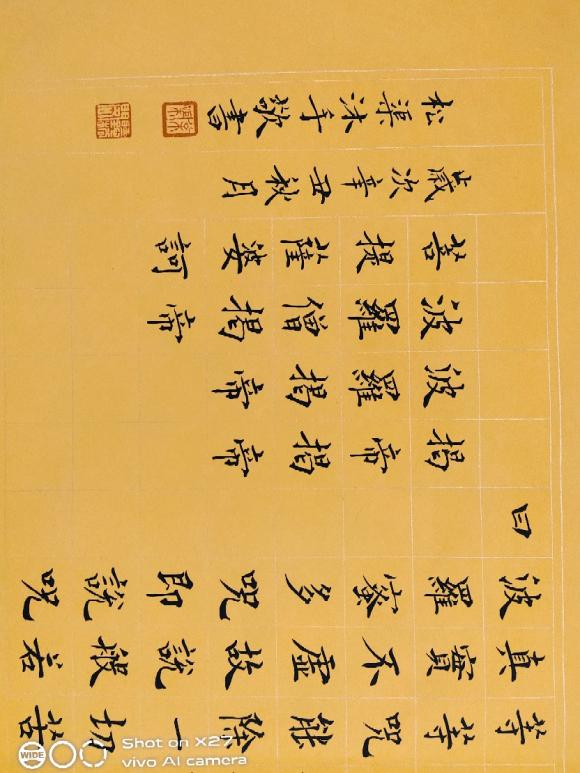 等等咒能除一切苦
真實不虛故說般若
波羅蜜多咒即說咒
曰
揭帝揭帝
波羅揭帝
波羅僧揭帝
菩提薩婆訶
歲次辛丑秋月
松渠沐手敬書
Shot on X27
vivo AI camera
WIDE